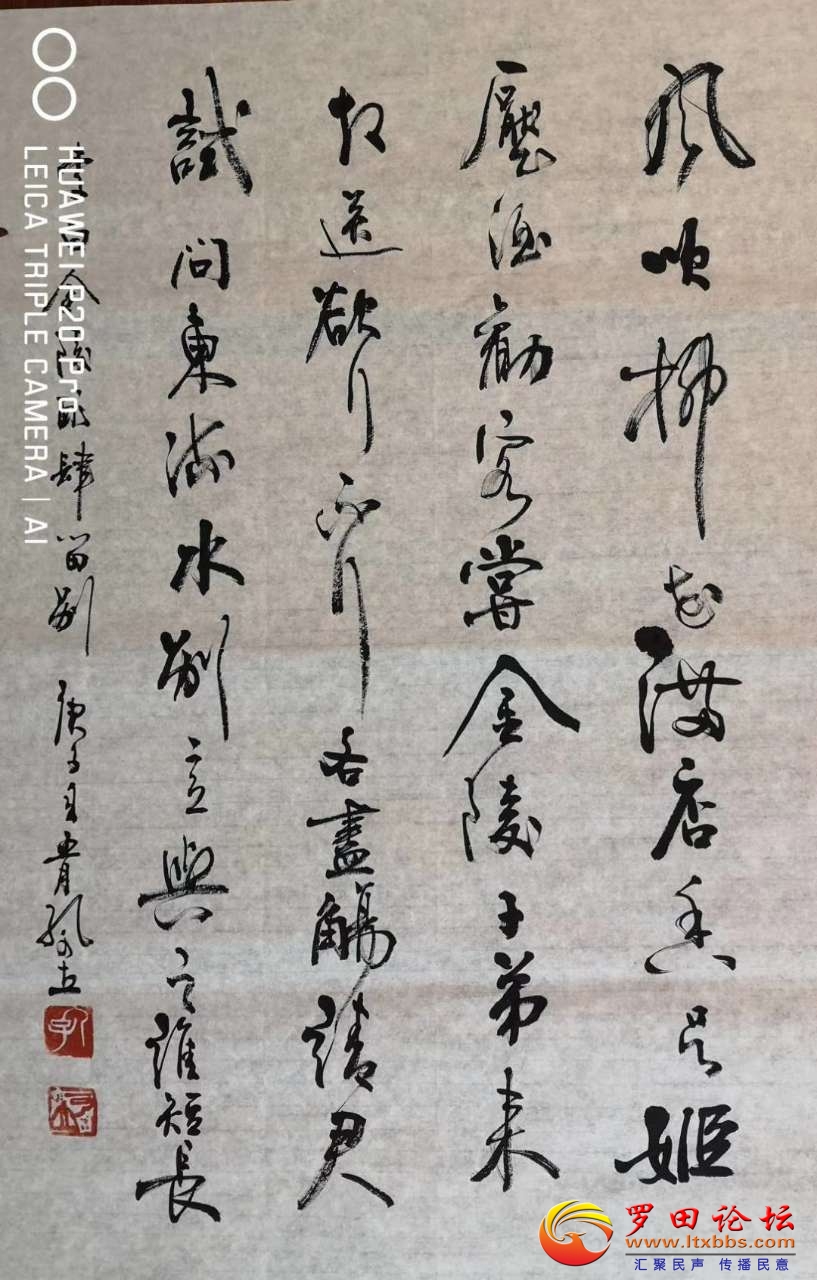 風吹柳花滿店香吳姬
壓酒勸客嘗金陵子弟來
相送欲行不行各盡觴請君
試問東流水别意與之誰短長
李白金陵酒肆留别 庚子
HUAWEI P20 Pro
LEICA TRIPLE CAMERA | AI
罗田论坛
www.ltxbbs.com
汇聚民声 传播民意